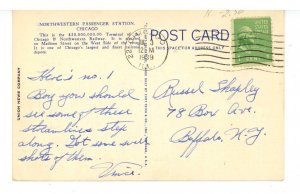 NORTHWESTERN PASSENGER STATION,
CHICAGO
This is the $20,000,000.00 Terminal of the
Chicago & Northwestern Railway. It is
on Madison Street on the West Side of the
It is one of Chicago's largest and finest
POST CARD
THIS SPACE FOR ADDRESS ONLY
12 M
1939
UNION NEWS COMPANY
Here's no. 1
Boy you should
see some of these
streamlines step
along. Got some swell
shots of them.
Vince.
Russel Shapley
78 Box Ave.
Buffalo, N.Y.